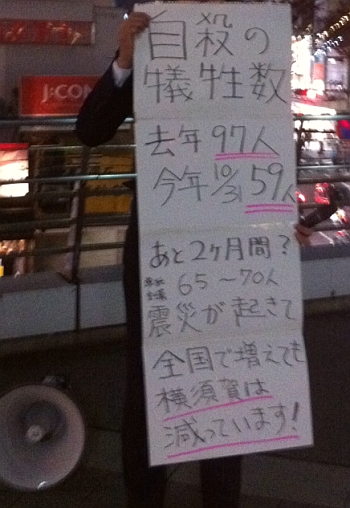 自殺の
犠牲数
去年97人
今年10/31 59人
あと2ヶ月間?
65〜70人
震災が起きて
全国で増えても
横須賀は
減っています!
J:COM